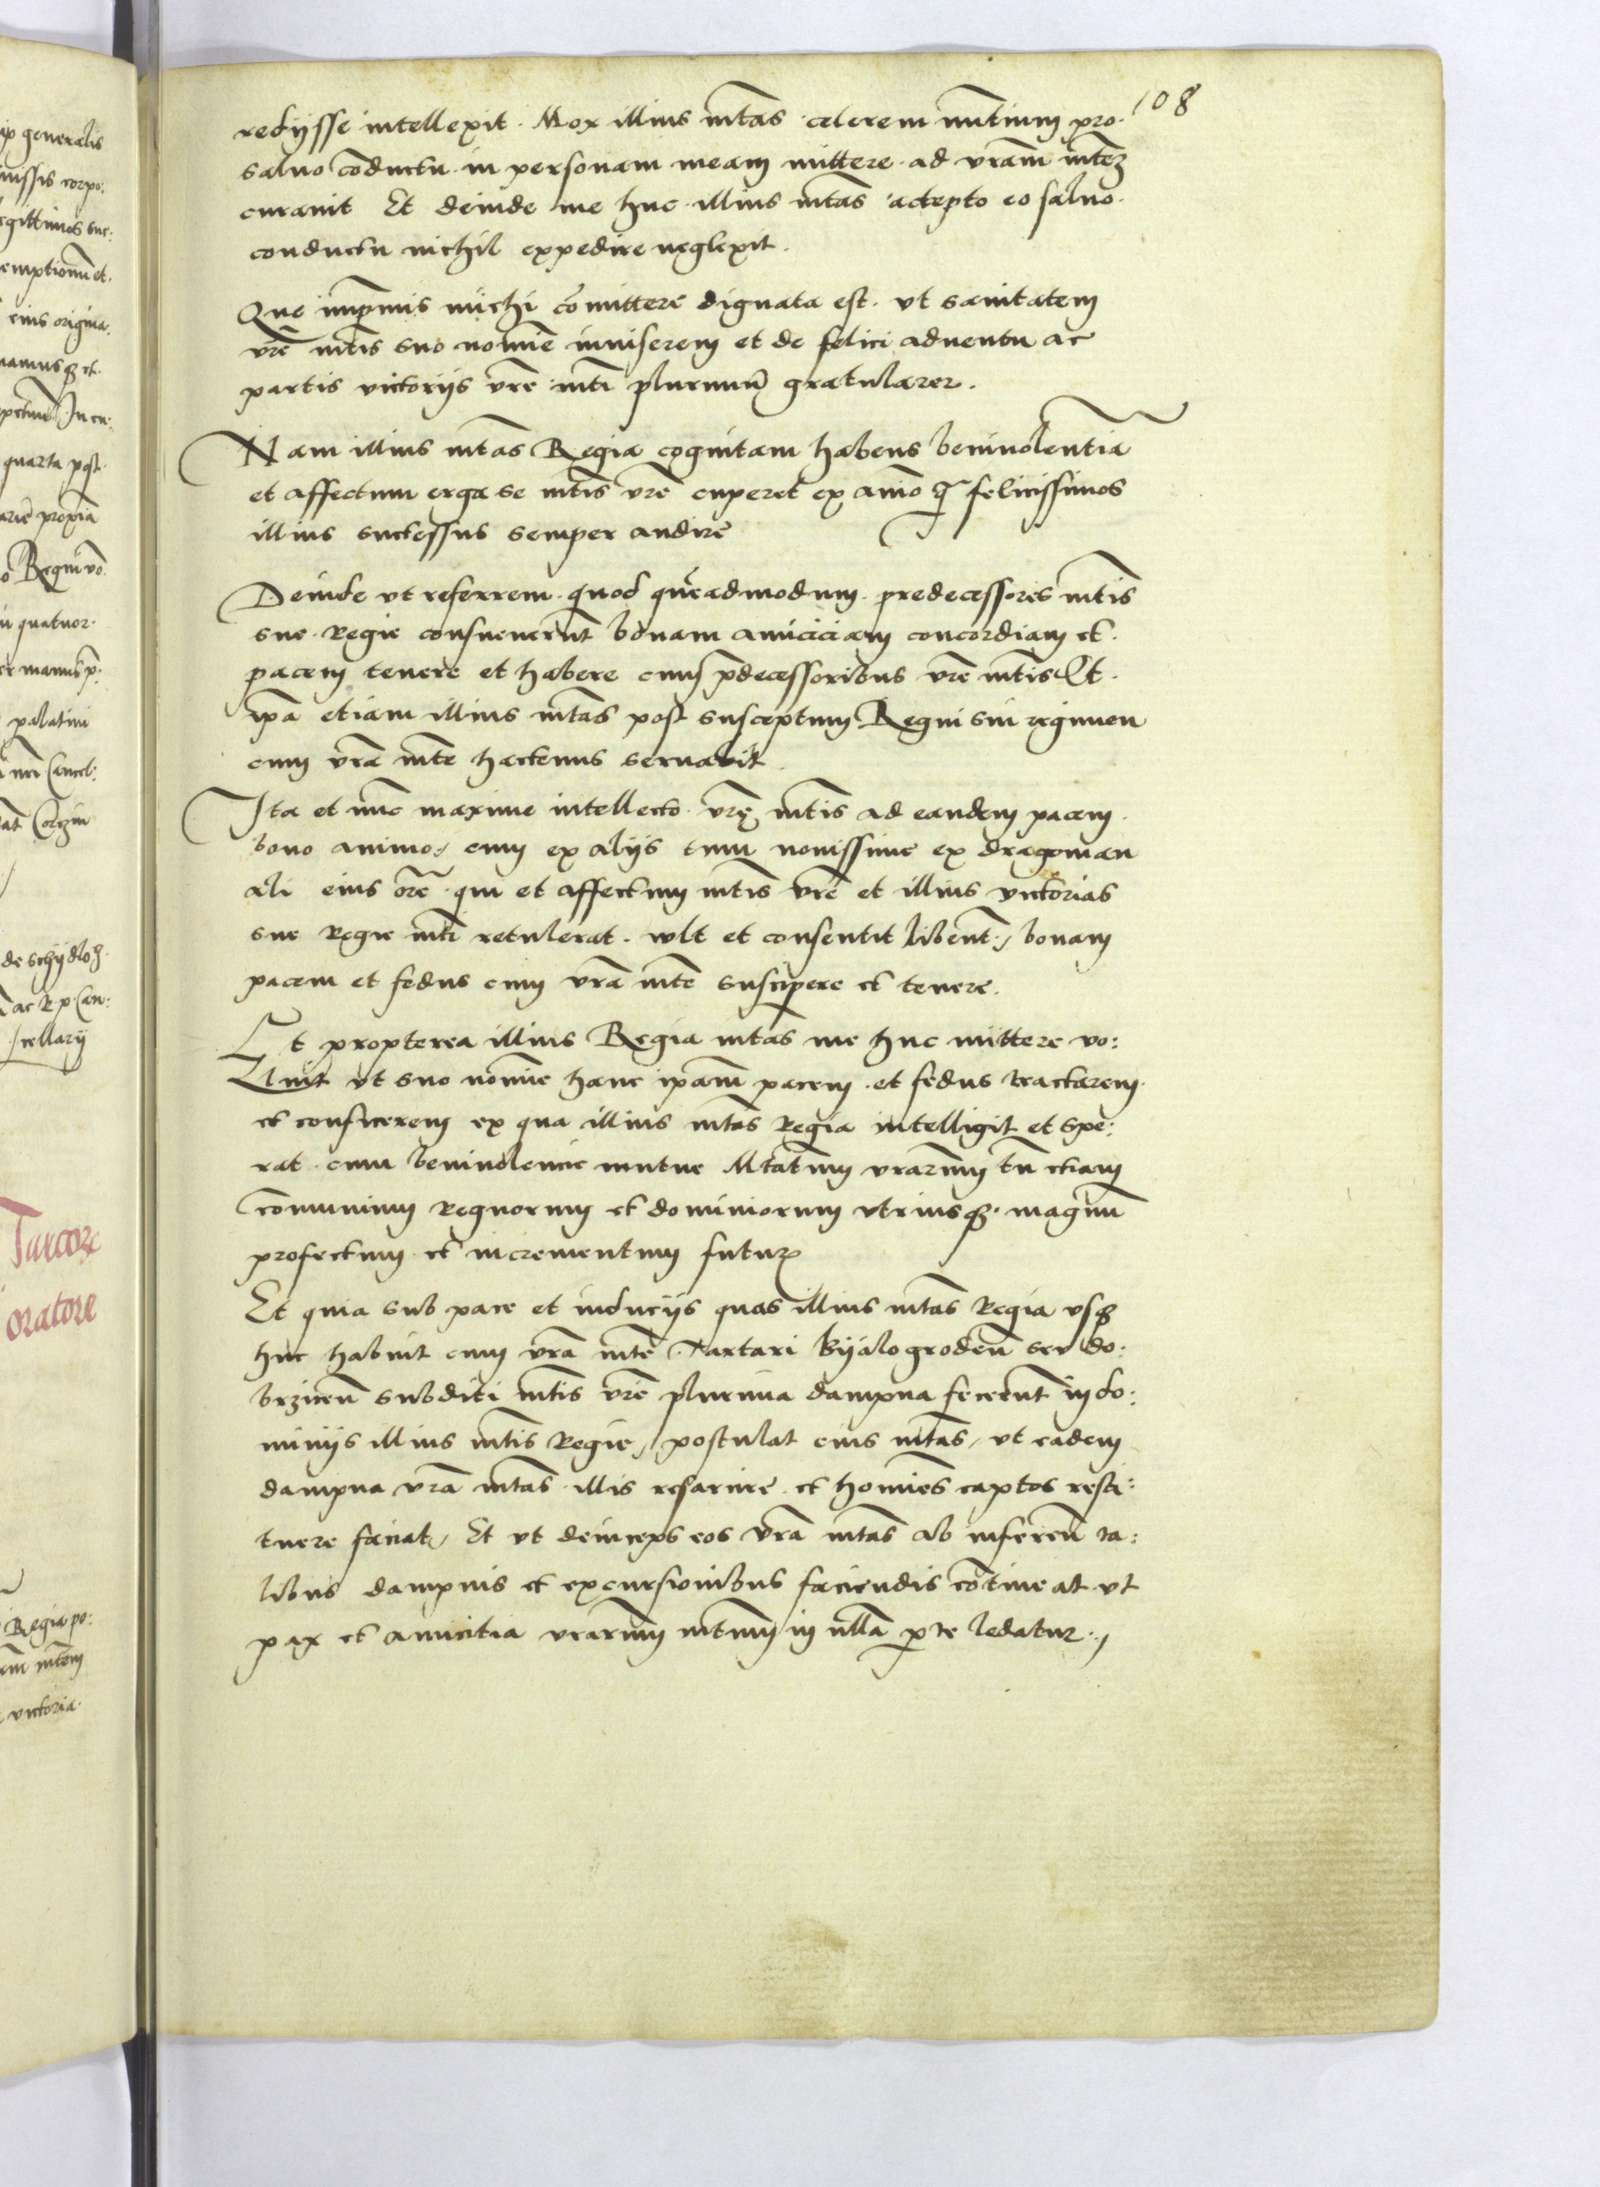 108
redijsse intellexit. Mox illius mtas celerem nuntium pro
saluo conductu in personam meam mittere ad vram mtez
curauit Et deinde me huc illius mtas accepto eo saluo
conductu nichil expedire neglexit.
Que inprimis michi comittere dignata est. vt sanitatem
vre mtis suo nomine inuiserem et de felici aduentu ac
partis victorijs vre mti plurimu gratularer.
Nam illius mtas Regia cognitam habens beniuolentia
et affectum erga se mtis vre cuperet ex animo felicissimos
illius successus semper audire
Deinde vt referrem quod queadmodum predecessores mtis
sue Regie consueuerut bonam amiciciam concordiam et
pacem tenere et habere cum pdecessoribus vre mtis Et
ipa etiam illius mtas post susceptum Regni sui regimen
cum vra mte hactenus seruabit
Ita et nuc maxime intellecto vre mtis ad eandem pacem
bono animo, cum ex alijs tum nouissime ex dragoman
ali eius ore qui et affectum mtis vre et illius victorias
sue Regie mti retulerat. wlt et consentit libent, bonam
pacem et fedus cum vra mte suscipere et tenere.
Et propterea illius Regia mtas me huc mittere vo:
luit vt suo nomine hanc ipam pacem et fedus tractarem
et conficerem ex qua illius mtas Regia intelligit et spe:
rat cum beniuolencie mutue Mtatum vrarum tu etiam
comunium Regnorum et dominiorum vtriusq magnu
profectum et incrementum futur
Et quia sub pace et inducijs quas illius mtas Regia vsq
huc habuit cum vra mte Tartari byalogroden seu do:
brzicen subditi mtis vre plurima dampna fecerut in do:
minijs illius mtis Regie, postulat eius mtas, vt eadem
dampna vra mtas illis resarcire et homines captos resti:
tuere faciat, Et vt deinceps eos vra mtas ab inferen ta:
libus dampnis et excursionibus faciendis contineat vt
pax et amicitia vrarum mtum in nulla pte ledatur.,
ip generalis
iussis corpo:
egittimos suc:
emptionu et
eius origina
quarta post
propria
Regni vo
quatuor
manus p:
palatini
Cancel:
de schydlo
ac R p Can:
cellarij
Turcor
oratore
Regia po:
mtem
victoria